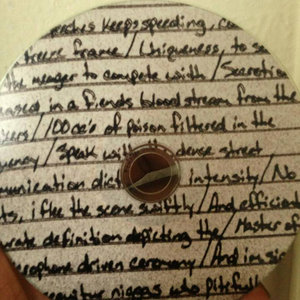 keeps speeding, c
freeze frame / Uniqueness, to s
the meager to compete with / Secretion
based in a fiends bloodstream from the
/ 100cc's of poison filtered in the
/ Speak with dense street
intensity / No
, i flee the scene swiftly / And efficient
definition depicting the / Master of
driven ceremony / And im sic
niggas who pitifull